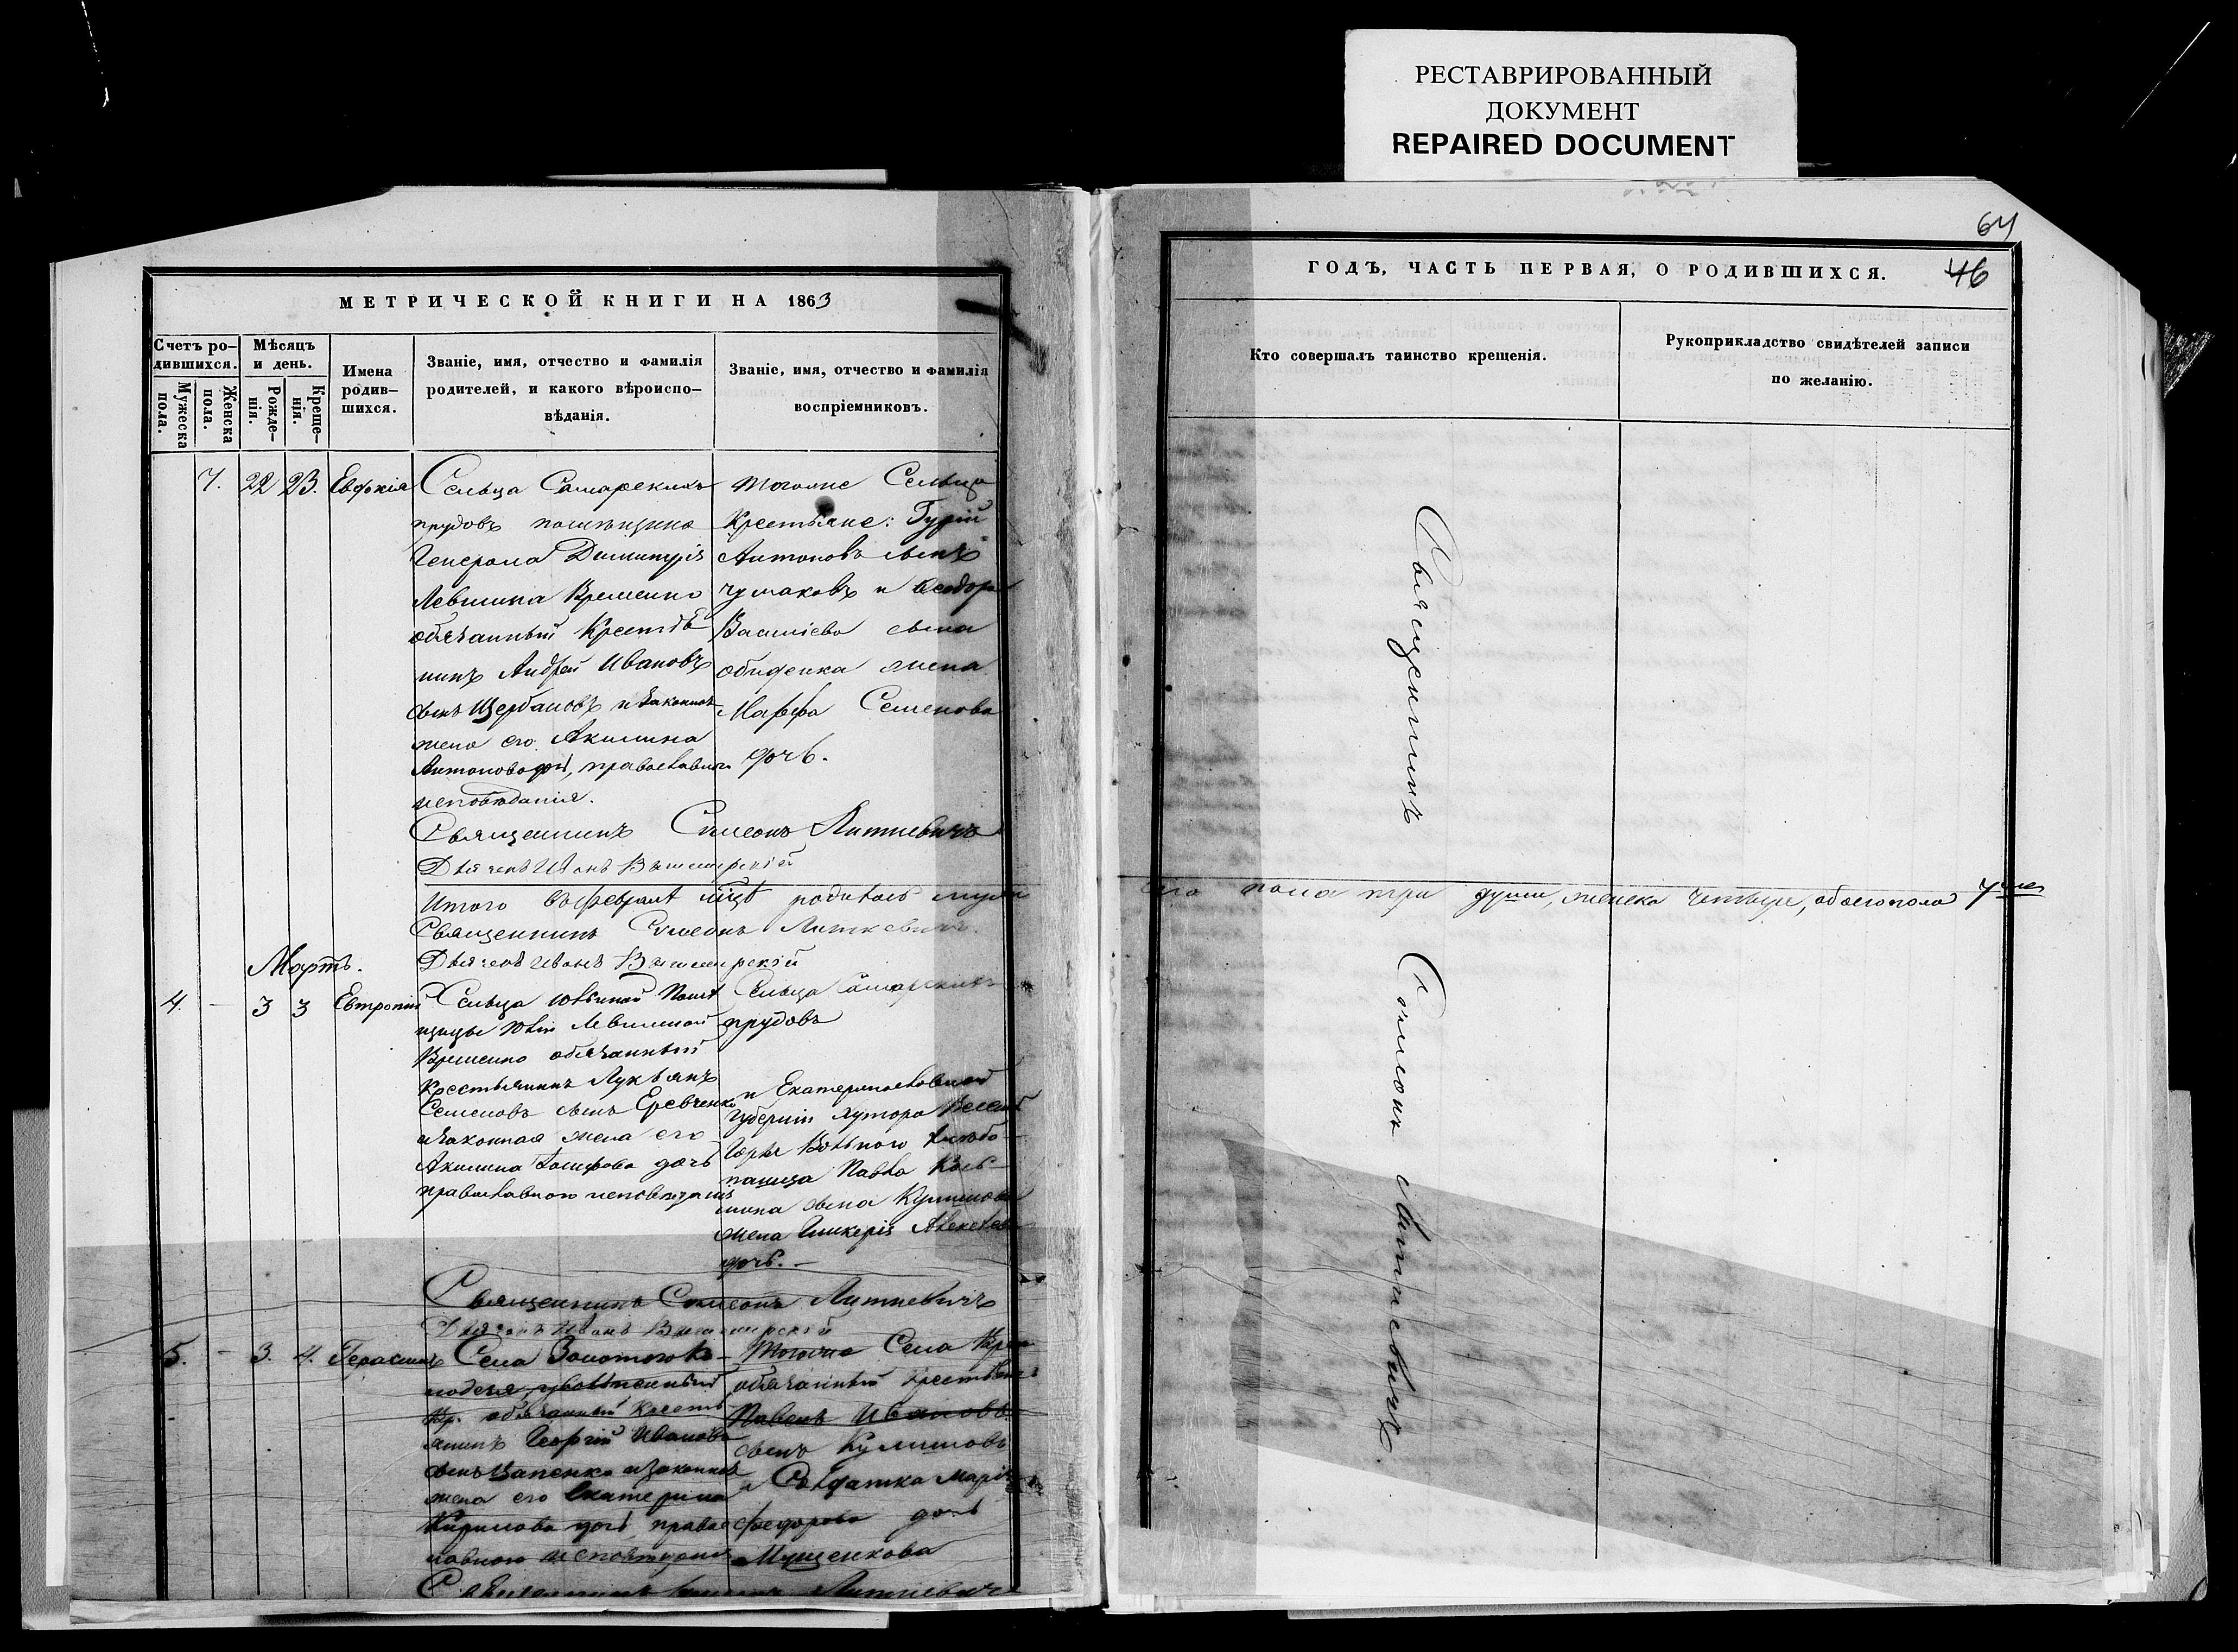 РЕСТАВРИРОВАННЫЙ
ДОКУМЕНТ
REPAIRED DOCUMENT
64
МЕТРИЧЕСКОЙ КНИГИ НА 1863
Счетъ ро-
дившихся.
Мужеска
пола.
Женска
пола.
Мѣсяцъ
и день.
Рожде-
нія.
Креще-
нія.
Имена
родив-
шихся.
Званіе, имя, отчество и фамилія
родителей, и какого вѣроиспо-
вѣданія.
Званіе, имя, отчество и фамилія
воспріемниковъ.
7. 22 23. Евфокія
Сельца Самарскихъ
прудовъ помѣщика
Генерала Димитрія
Левшина Временно
обязанный Крестья
нинъ Андрей Ивановъ
сынъ Щербаковъ и законная
жена его Акилина
Антонова дочь, православнаго
исповѣданія.
тогоже Сельца
Крестьяне: Гурій
Антоновъ сынъ
Чумаковъ и Феодора
Василіева сына
жена
Марфа Семенова
дочь.
Священникъ Симеонъ Литкевичъ
Дьячекъ Иванъ Вышемирскій
Итого въ февралѣ м̃цѣ родилось муже
Священникъ Симеонъ Литкевичъ
Дьячекъ Иванъ Вышемирскій
Мартъ.
4. - 3 3 Евтропій
Сельца Помѣ
щицы Юліи Левшиной
Временно обязанный
Крестьянинъ Лукьянъ
Семеновъ сынъ Еревченко
и законная жена его
Акилина Іосифова дочь
православнаго исповѣданія
Сельца Самарскихъ
прудовъ
и Екатеринославской
губерніи хутора
Вольного хлѣбо-
пашца Павла Козь-
мина сына Кулишова
жена Гликерія Алексѣева
дочь. -
Священникъ Симеонъ Литкевичъ
Дьячекъ Иванъ Вышемирскій
5. - 3. 4. Герасимъ
Села Золотого Ко-
лодезя,
Вр. обязанный Кресть
янинъ Георгій Ивановъ
сынъ Цапенко и законная
жена его Екатерина
Кирилова дочь, правос
лавного исповѣданія
Тогоже Села Врем
обязанный Крестьянинъ
Павелъ Ивановъ
сынъ Кулишовъ
и Солдатка Марія
Федорова дочь
Мущенкова
Священникъ Симеонъ Литкевичъ
ГОДЪ, ЧАСТЬ ПЕРВАЯ, О РОДИВШИХСЯ. 46
Кто совершалъ таинство крещенія.
Рукоприкладство свидѣтелей записи
по желанію.
Священникъ
ска пола три души, женска четыре, обоего пола 7
Симеонъ Литкевичъ